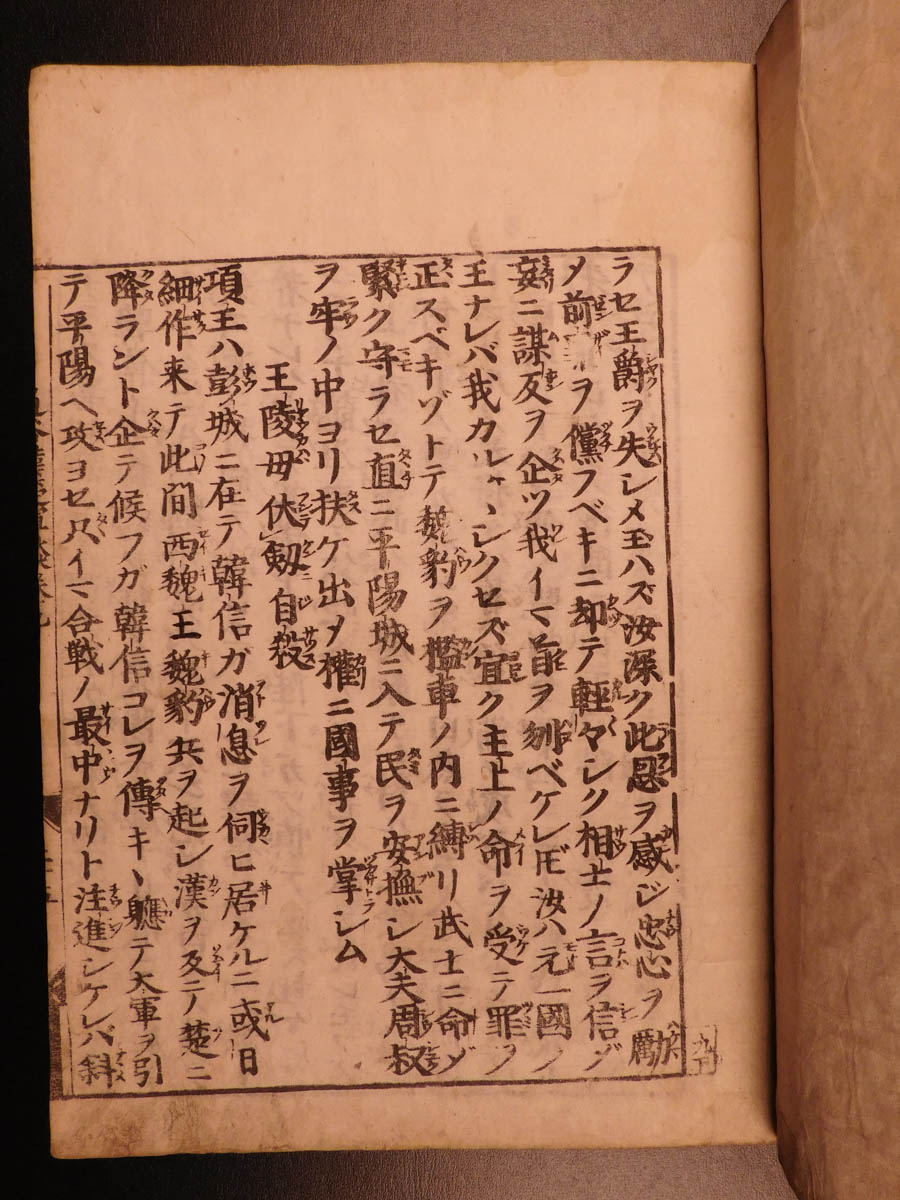 ラセ王爵ヲ失シメ玉ハズ汝深ク此恩ヲ感ジ忠心ヲ励
メ前ヲ儻フベキニ却テ輕々シク相士ノ言ヲ信ジ
妄ニ謀反ヲ企ツ我イマ首ヲ刎ベケレ𪜈汝ハ元一國ノ
王ナレバ我カルヾシクセズ宜ク主上ノ命ヲ受テ罪ヲ
正スベキゾトテ魏豹ヲ檻車ノ内ニ縛リ武士ニ命ジ
緊ク守ラセ直ニ平陽城ニ入テ民ヲ安撫シ大夫周叔
ヲ牢ノ中ヨリ扶ケ出メ権ニ國事ヲ掌シム
王陵母伏劔自殺
項王ハ彭城ニ在テ韓信ガ消息ヲ伺ヒ居ケルニ或日
細作来テ此間西魏王魏豹兵ヲ起シ漢ヲ反テ楚ニ
降ラント企テ候フガ韓信コレヲ傳キヽ軈テ大軍ヲ引
テ平陽ヘ攻ヨセ只イマ合戦ノ最中ナリト注進シケレバ斜